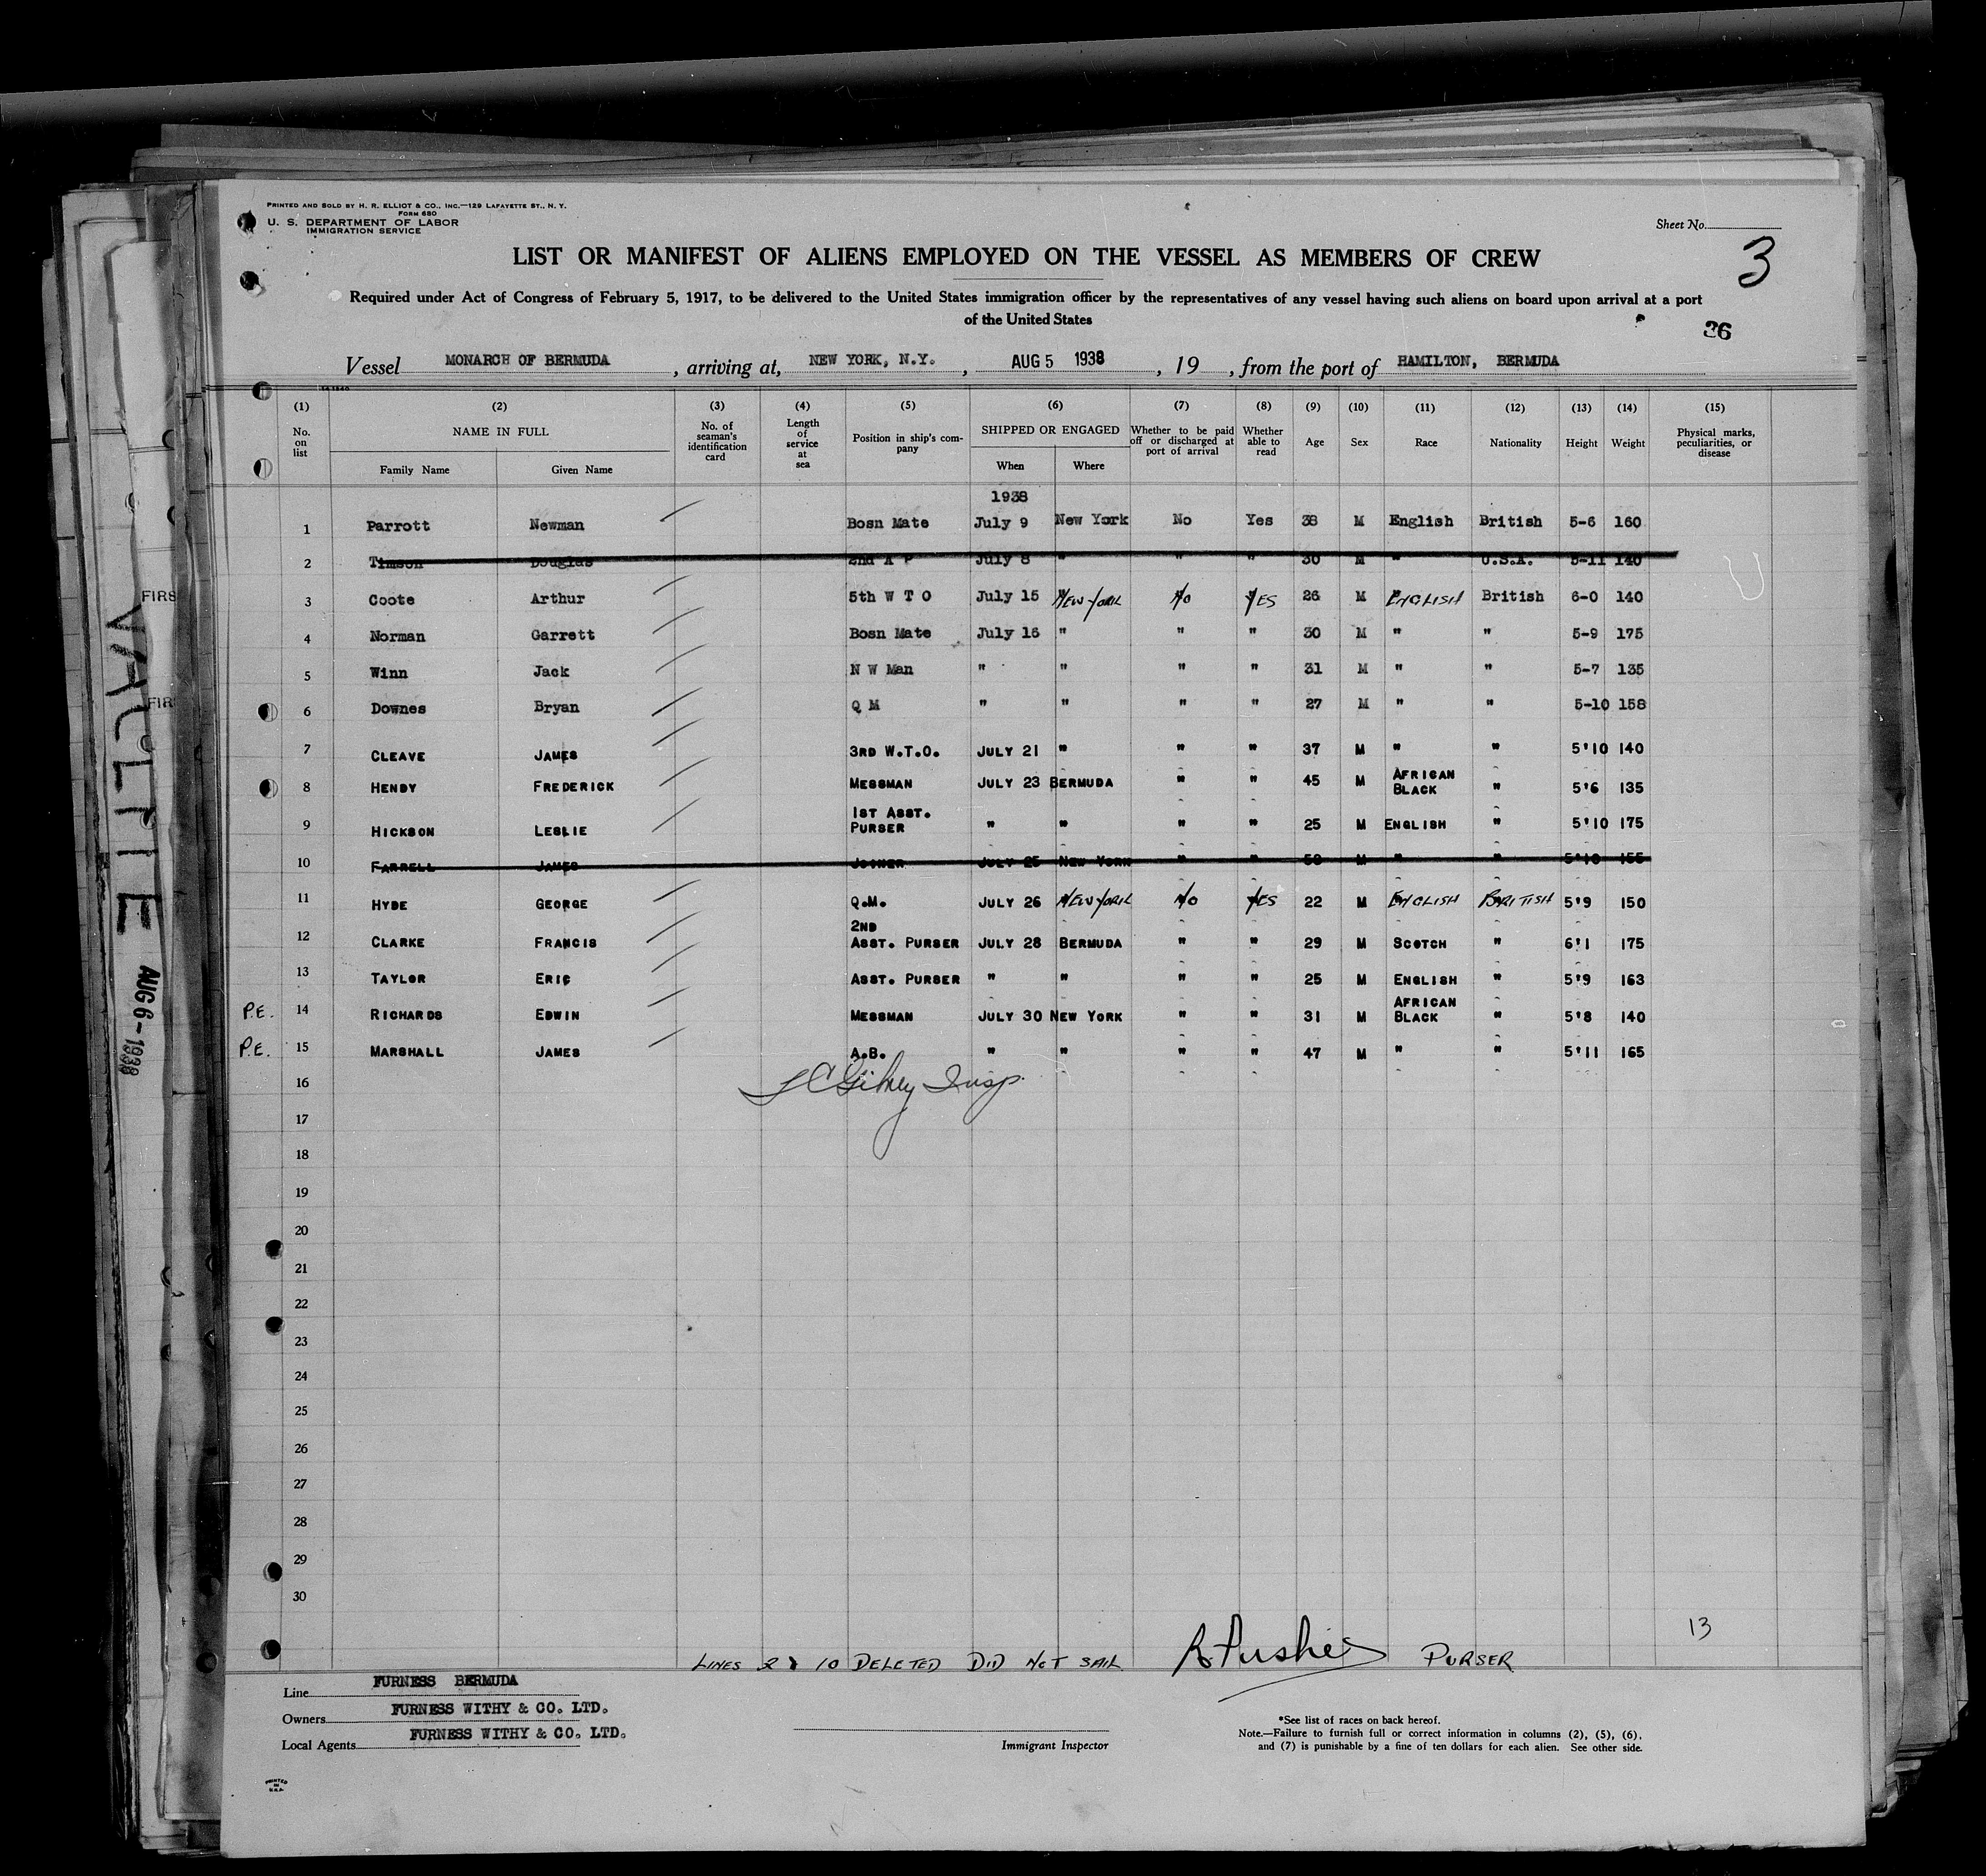 PRINTED AND SOLD BY H. R. ELLIOT & CO., INC.—129 LAFAYETTE ST., N. Y.
FORM 680
U. S. DEPARTMENT OF LABOR
IMMIGRATION SERVICE
Sheet No.
3
LIST OR MANIFEST OF ALIENS EMPLOYED ON THE VESSEL AS MEMBERS OF CREW
Required under Act of Congress of February 5, 1917, to be delivered to the United States immigration officer by the representatives of any vessel having such aliens on board upon arrival at a port
of the United States
36
Vessel MONARCH OF BERMUDA , arriving at, NEW YORK, N.Y. , AUG 5 1938 , 19 , from the port of HAMILTON, BERMUDA
(1) (2) (3) (4) (5) (6) (7) (8) (9) (10) (11) (12) (13) (14) (15)
No. on list NAME IN FULL Family Name Given Name No. of seaman's identification card Length of service at sea Position in ship's company SHIPPED OR ENGAGED When Where Whether to be paid off or discharged at port of arrival Whether able to read Age Sex Race Nationality Height Weight Physical marks, peculiarities, or disease
1938
1 Parrott Newman Bosn Mate July 9 New York No Yes 38 M English British 5-6 160
2 Timson Douglas 2nd A P July 8 " " " 30 M " U.S.A. 5-11 140
3 Coote Arthur 5th W T O July 15 NEW YORK NO YES 26 M ENGLISH British 6-0 140
4 Norman Garrett Bosn Mate July 16 " " " 30 M " " 5-9 175
5 Winn Jack N W Man " " " " 31 M " " 5-7 135
6 Downes Bryan Q M " " " " 27 M " " 5-10 158
7 CLEAVE JAMES 3RD W.T.O. JULY 21 " " " 37 M " " 5'10 140
8 HENDY FREDERICK MESSMAN JULY 23 BERMUDA " " 45 M AFRICAN BLACK " 5'6 135
9 HICKSON LESLIE 1ST ASST. PURSER " " " " 25 M ENGLISH " 5'10 175
10 FARRELL JAMES JOINER JULY 25 NEW YORK " " 50 M " " 5'10 155
11 HYDE GEORGE Q.M. JULY 26 NEW YORK NO YES 22 M ENGLISH BRITISH 5'9 150
12 CLARKE FRANCIS 2ND ASST. PURSER JULY 28 BERMUDA " " 29 M SCOTCH " 6'1 175
13 TAYLOR ERIC ASST. PURSER " " " " 25 M ENGLISH " 5'9 163
P.E. 14 RICHARDS EDWIN MESSMAN JULY 30 NEW YORK " " 31 M AFRICAN BLACK " 5'8 140
P.E. 15 MARSHALL JAMES A.B. " " " " 47 M " " 5'11 165
16
Insp.
17
18
19
20
21
22
23
24
25
26
27
28
29
30
13
LINES 2 & 10 DELETED DID NOT SAIL PURSER
Line FURNESS BERMUDA
Owners FURNESS WITHY & CO. LTD.
Local Agents FURNESS WITHY & CO. LTD.
Immigrant Inspector
*See list of races on back hereof.
Note.—Failure to furnish full or correct information in columns (2), (5), (6),
and (7) is punishable by a fine of ten dollars for each alien. See other side.
PRINTED
IN
U.S.A.
FIRS
FIR
AUG 6-1938